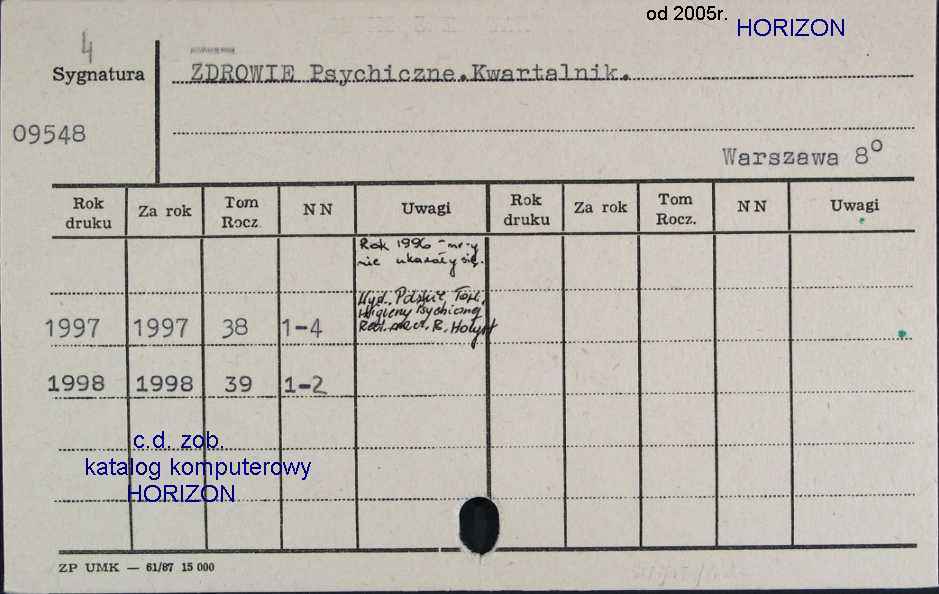 od 2005r.
HORIZON
4
Sygnatura
ZDROWIE Psychiczne.Kwartalnik.
09548
Warszawa 8°
Rok druku Za rok Tom Rocz. NN Uwagi Rok druku Za rok Tom Rocz. NN Uwagi
Rok 1996 - nr-y
nie ukazały się.
Wyd. Polskie Tow.
Higieny Psychicznej
Red. nacz. B. Hołyst
1997 1997 38 1-4
1998 1998 39 1-2
c.d. zob.
katalog komputerowy
HORIZON
ZP UMK — 61/87 15 000